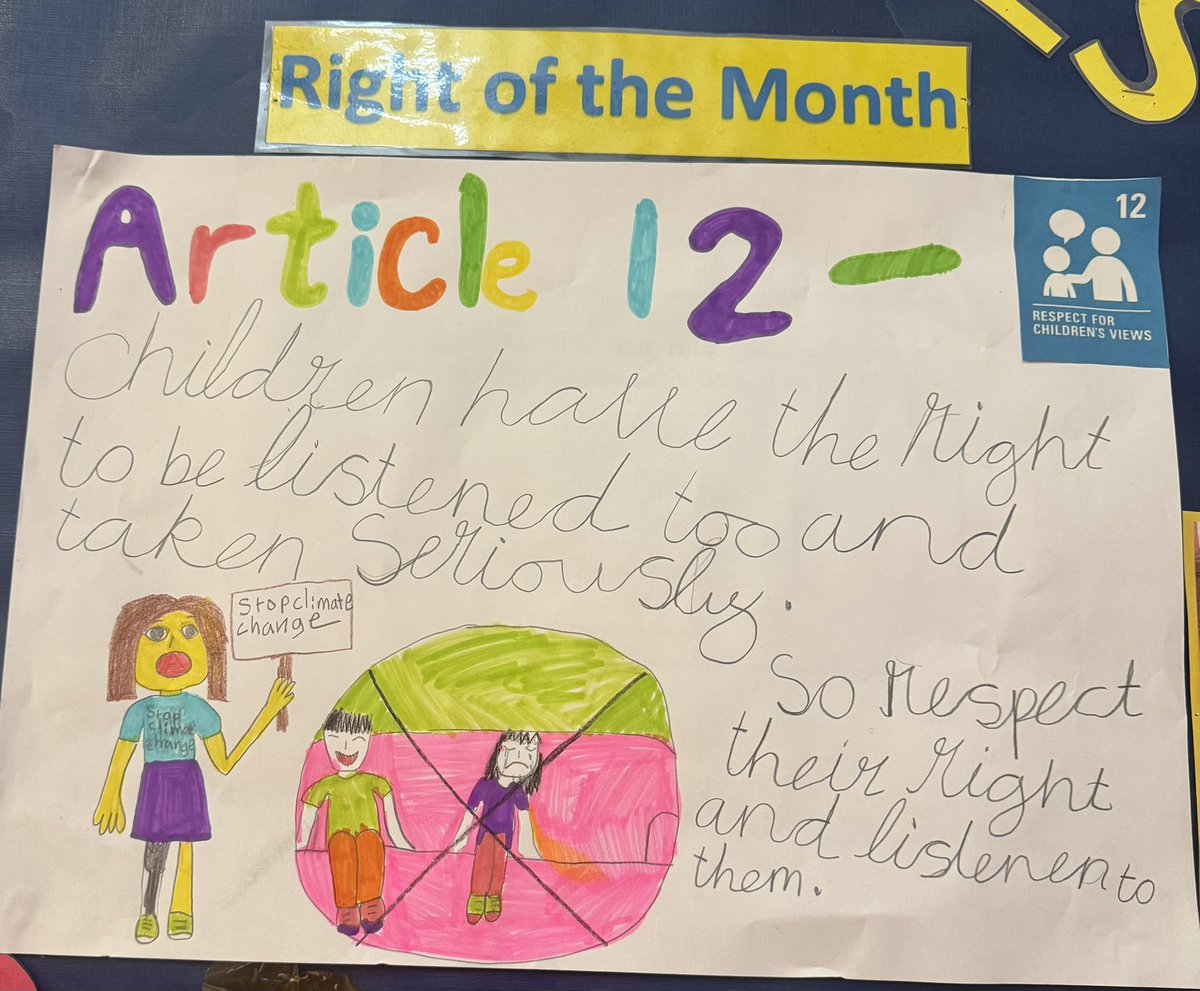 Right of the Month
Article 12 –
12
RESPECT FOR
CHILDREN'S VIEWS
children have the right
to be listened too and
taken Seriously.
Stop climate
change
Stop
climate
change
So respect
their right
and listenen to
them.